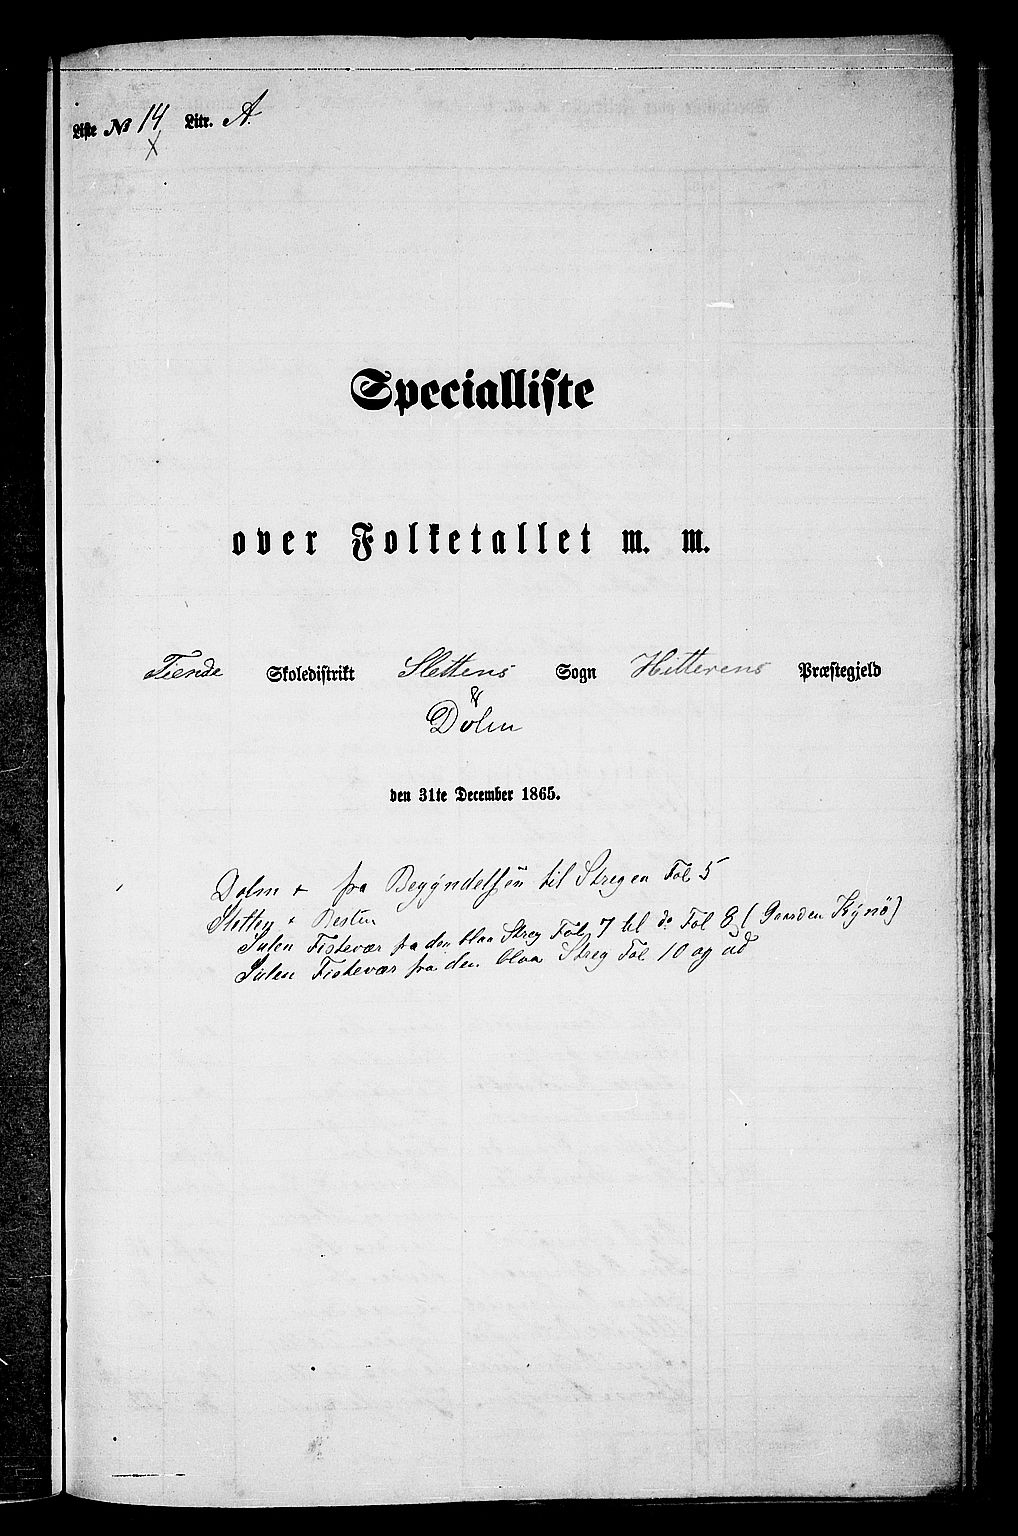 Liste No 14 Litr. A.
x
Specialliste
over Folketallet m. m.
Tiende Skoledistrikt Slettens Sogn Hitterens Præstegjeld
&
Dolm
den 31te December 1865.
Dolm + fra Begyndelsen til Stregen Fol 5
Sletten + Resten
Sulen Fiskevær fra den blaa Streg Fol. 7 til do Fol 8 (Gaarden Kynø)
Sulen Fiskevær fra den blaa Streg Fol. 10 og ud